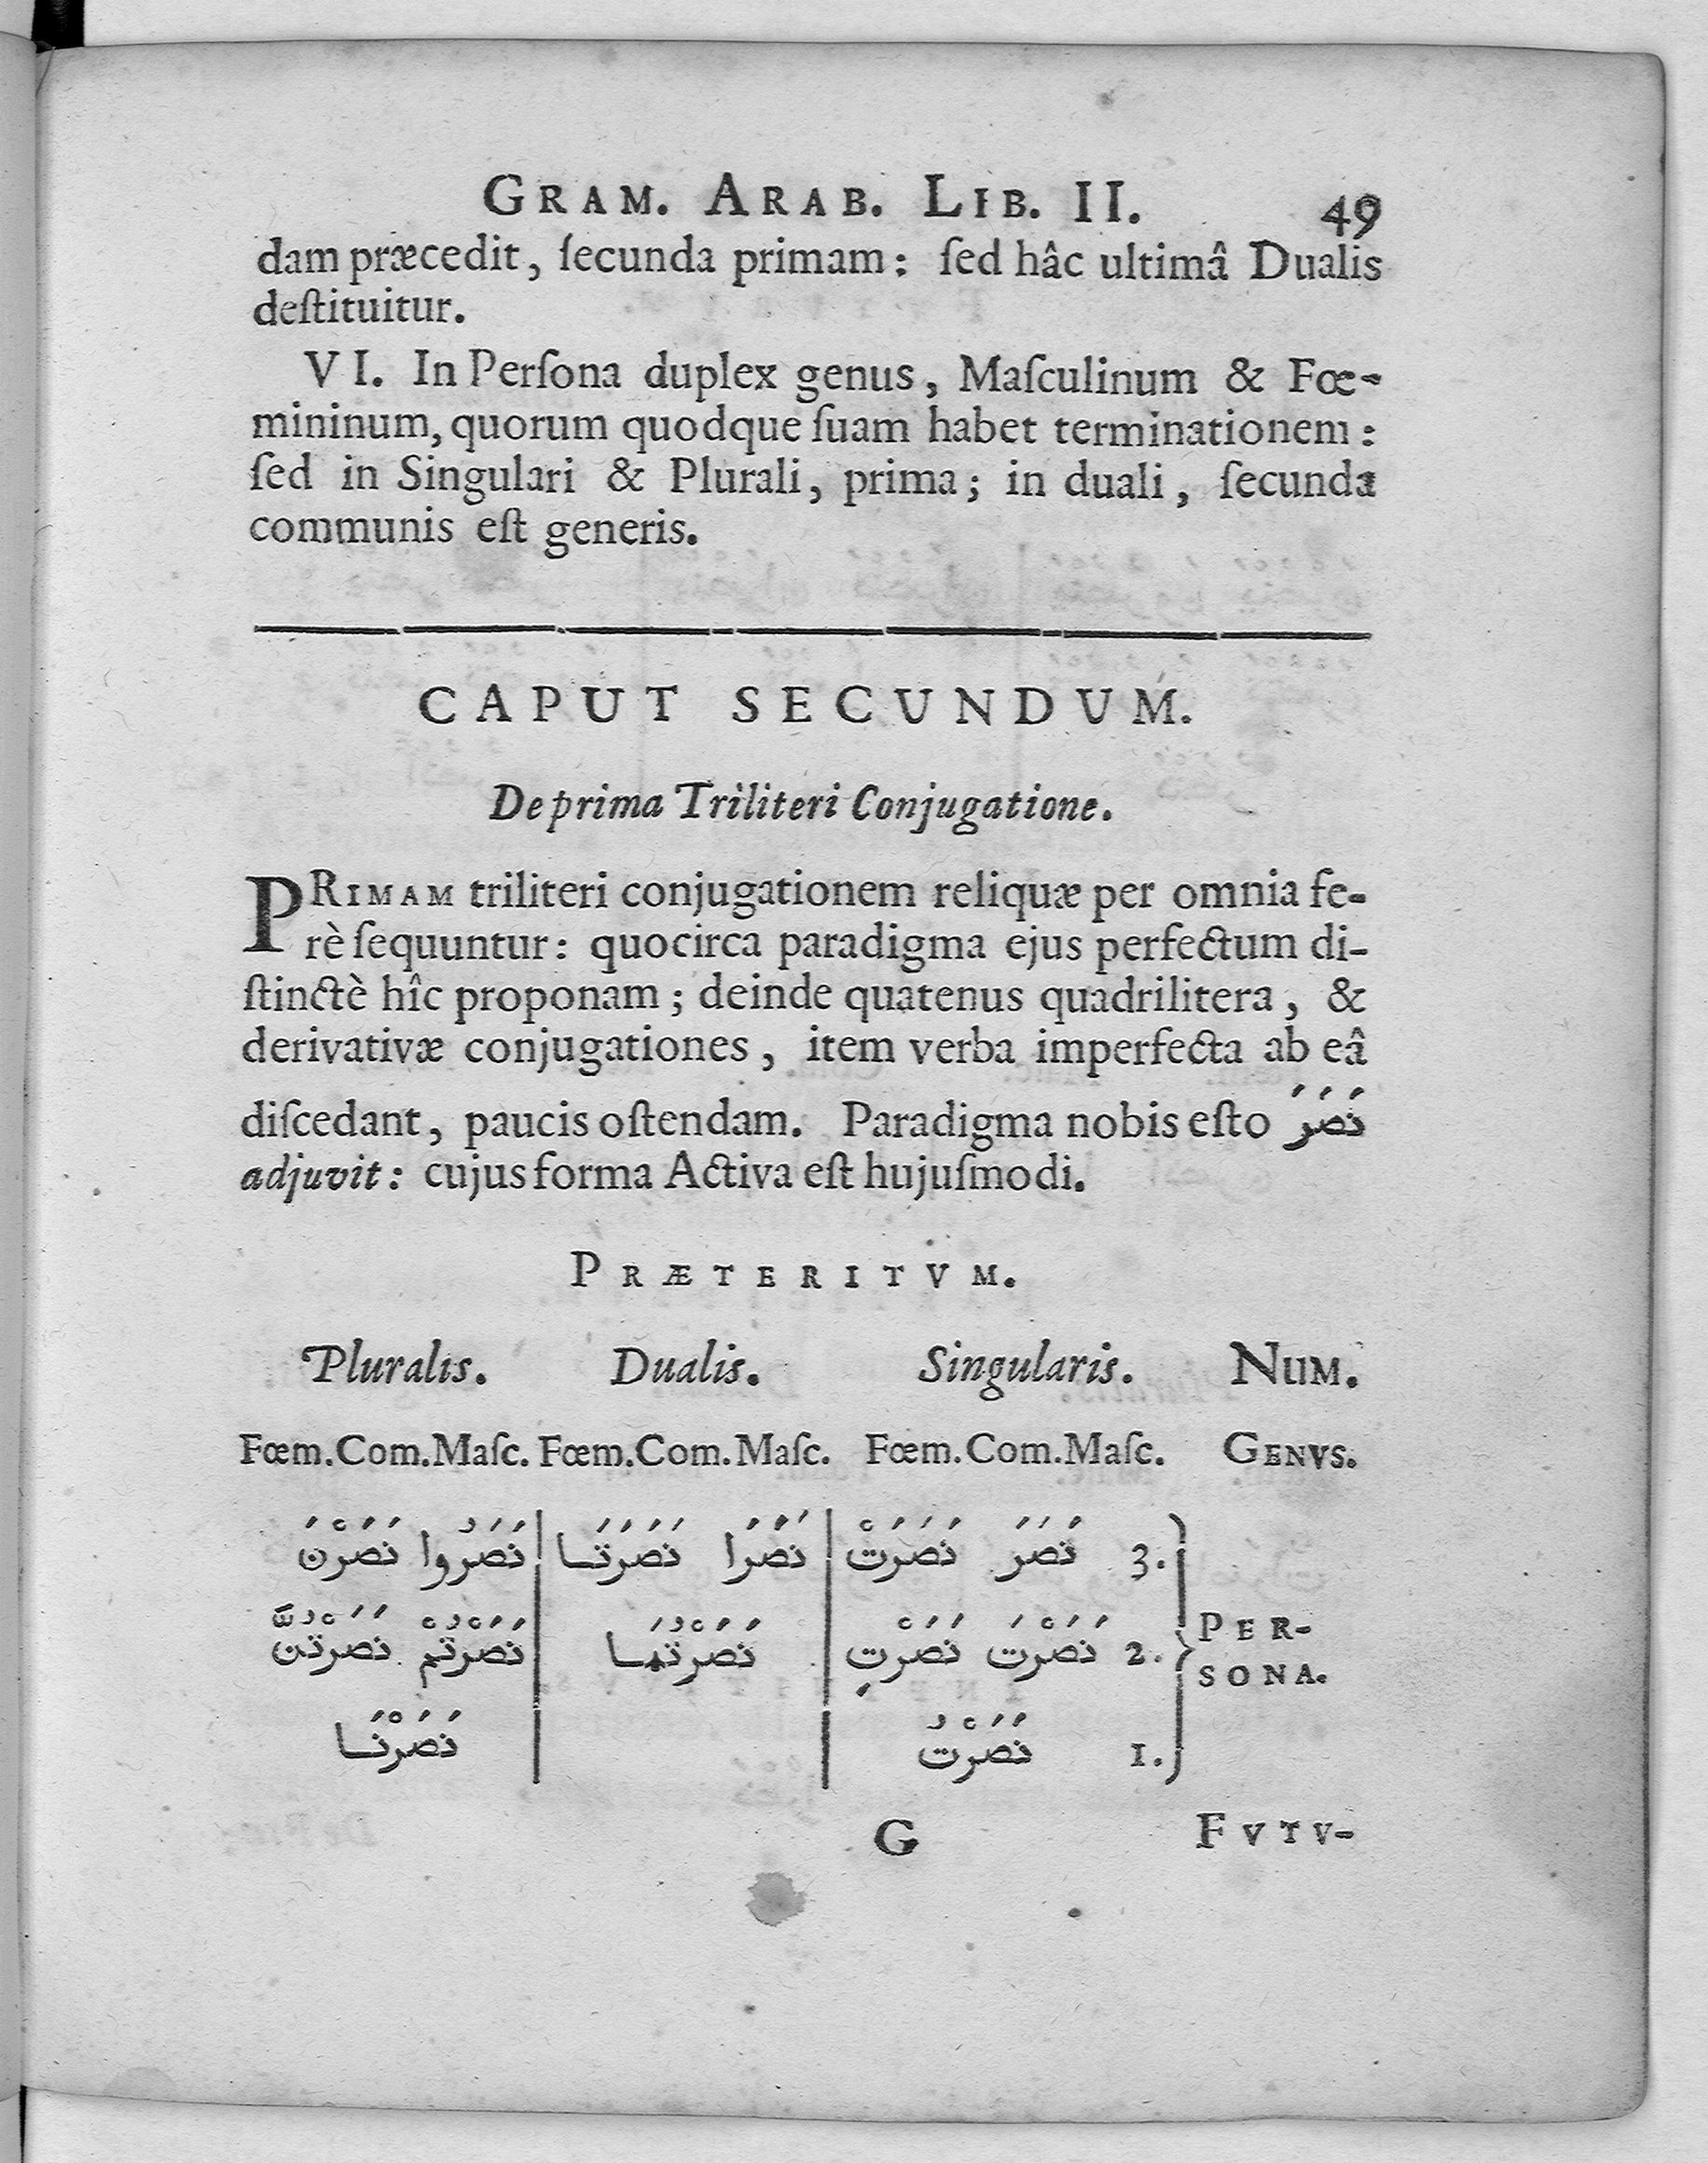 GRAM. ARAB. LIB. II. 49
dam præcedit, ſecunda primam: ſed hâc ultimâ Dualis
deſtituitur.
VI. In Perſona duplex genus, Maſculinum & Fœ-
mininum, quorum quodque ſuam habet terminationem:
ſed in Singulari & Plurali, prima; in duali, ſecunda
communis eſt generis.
CAPUT SECUNDUM.
De prima Triliteri Conjugatione.
PRIMAM triliteri conjugationem reliquæ per omnia fe-
rè ſequuntur: quocirca paradigma ejus perfectum di-
ſtinctè hîc proponam; deinde quatenus quadrilitera, &
derivativæ conjugationes, item verba imperfecta ab eâ
diſcedant, paucis oſtendam. Paradigma nobis eſto نَصَرَ
adjuvit: cujus forma Activa eſt hujuſmodi.
PRÆTERITVM.
Pluralis. Dualis. Singularis. NUM.
Fœm. Com. Maſc. Fœm. Com. Maſc. Fœm. Com. Maſc. GENVS.
نَصَرْنَ نَصَرُوا نَصَرَتَا نَصَرَا نَصَرَتْ نَصَرَ 3.
نَصَرْتُنَّ نَصَرْتُمْ نَصَرْتُمَا نَصَرْتِ نَصَرْتَ 2. PER-
SONA.
نَصَرْنَا نَصَرْتُ 1.
G FVTV-